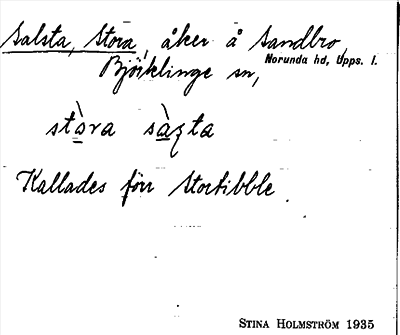 Salsta, Stora, åker å Sandbro,
Björklinge sn, Norunda hd, Upps. l.
stòra sàʒta
Kallades förr Storkibble.
STINA HOLMSTRÖM 1935